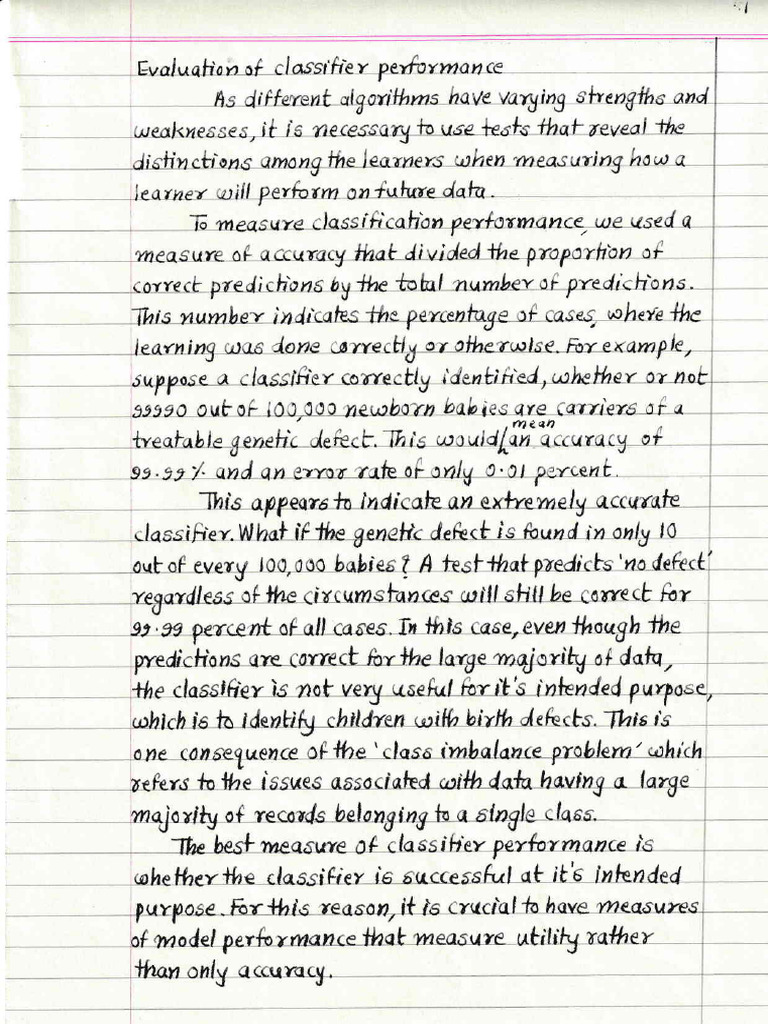 Evaluation of classifier performance
As different algorithms have varying strengths and
weaknesses, it is necessary to use tests that reveal the
distinctions among the learners when measuring how a
learner will perform on future data.
To measure classification performance, we used a
measure of accuracy that divided the proportion of
correct predictions by the total number of predictions.
This number indicates the percentage of cases, where the
learning was done correctly or otherwise. For example,
suppose a classifier correctly identified, whether or not
99990 out of 100,000 newborn babies are carriers of a
treatable genetic defect. This would mean an accuracy of
99.99% and an error rate of only 0.01 percent.
This appears to indicate an extremely accurate
classifier. What if the genetic defect is found in only 10
out of every 100,000 babies? A test that predicts 'no defect'
regardless of the circumstances will still be correct for
99.99 percent of all cases. In this case, even though the
predictions are correct for the large majority of data,
the classifier is not very useful for it's intended purpose,
which is to identify children with birth defects. This is
one consequence of the 'class imbalance problem' which
refers to the issues associated with data having a large
majority of records belonging to a single class.
The best measure of classifier performance is
whether the classifier is successful at it's intended
purpose. For this reason, it is crucial to have measures
of model performance that measure utility rather
than only accuracy.